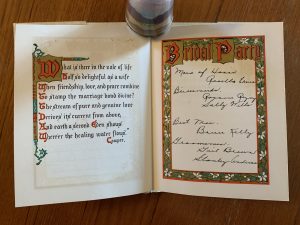 What is there in the vale of life
Half so delightful as a wife
When friendship, love, and peace combine
To stamp the marriage bond divine?
The stream of pure and genuine love
Derives its current from above,
And earth a second Eden shows
Where'er the healing water flows.
Cowper.
Bridal Party
Maid of Honor
Bridesmaids
Sally Mills
Best Man
Bruce Kelly
Groomsmen
Stanley